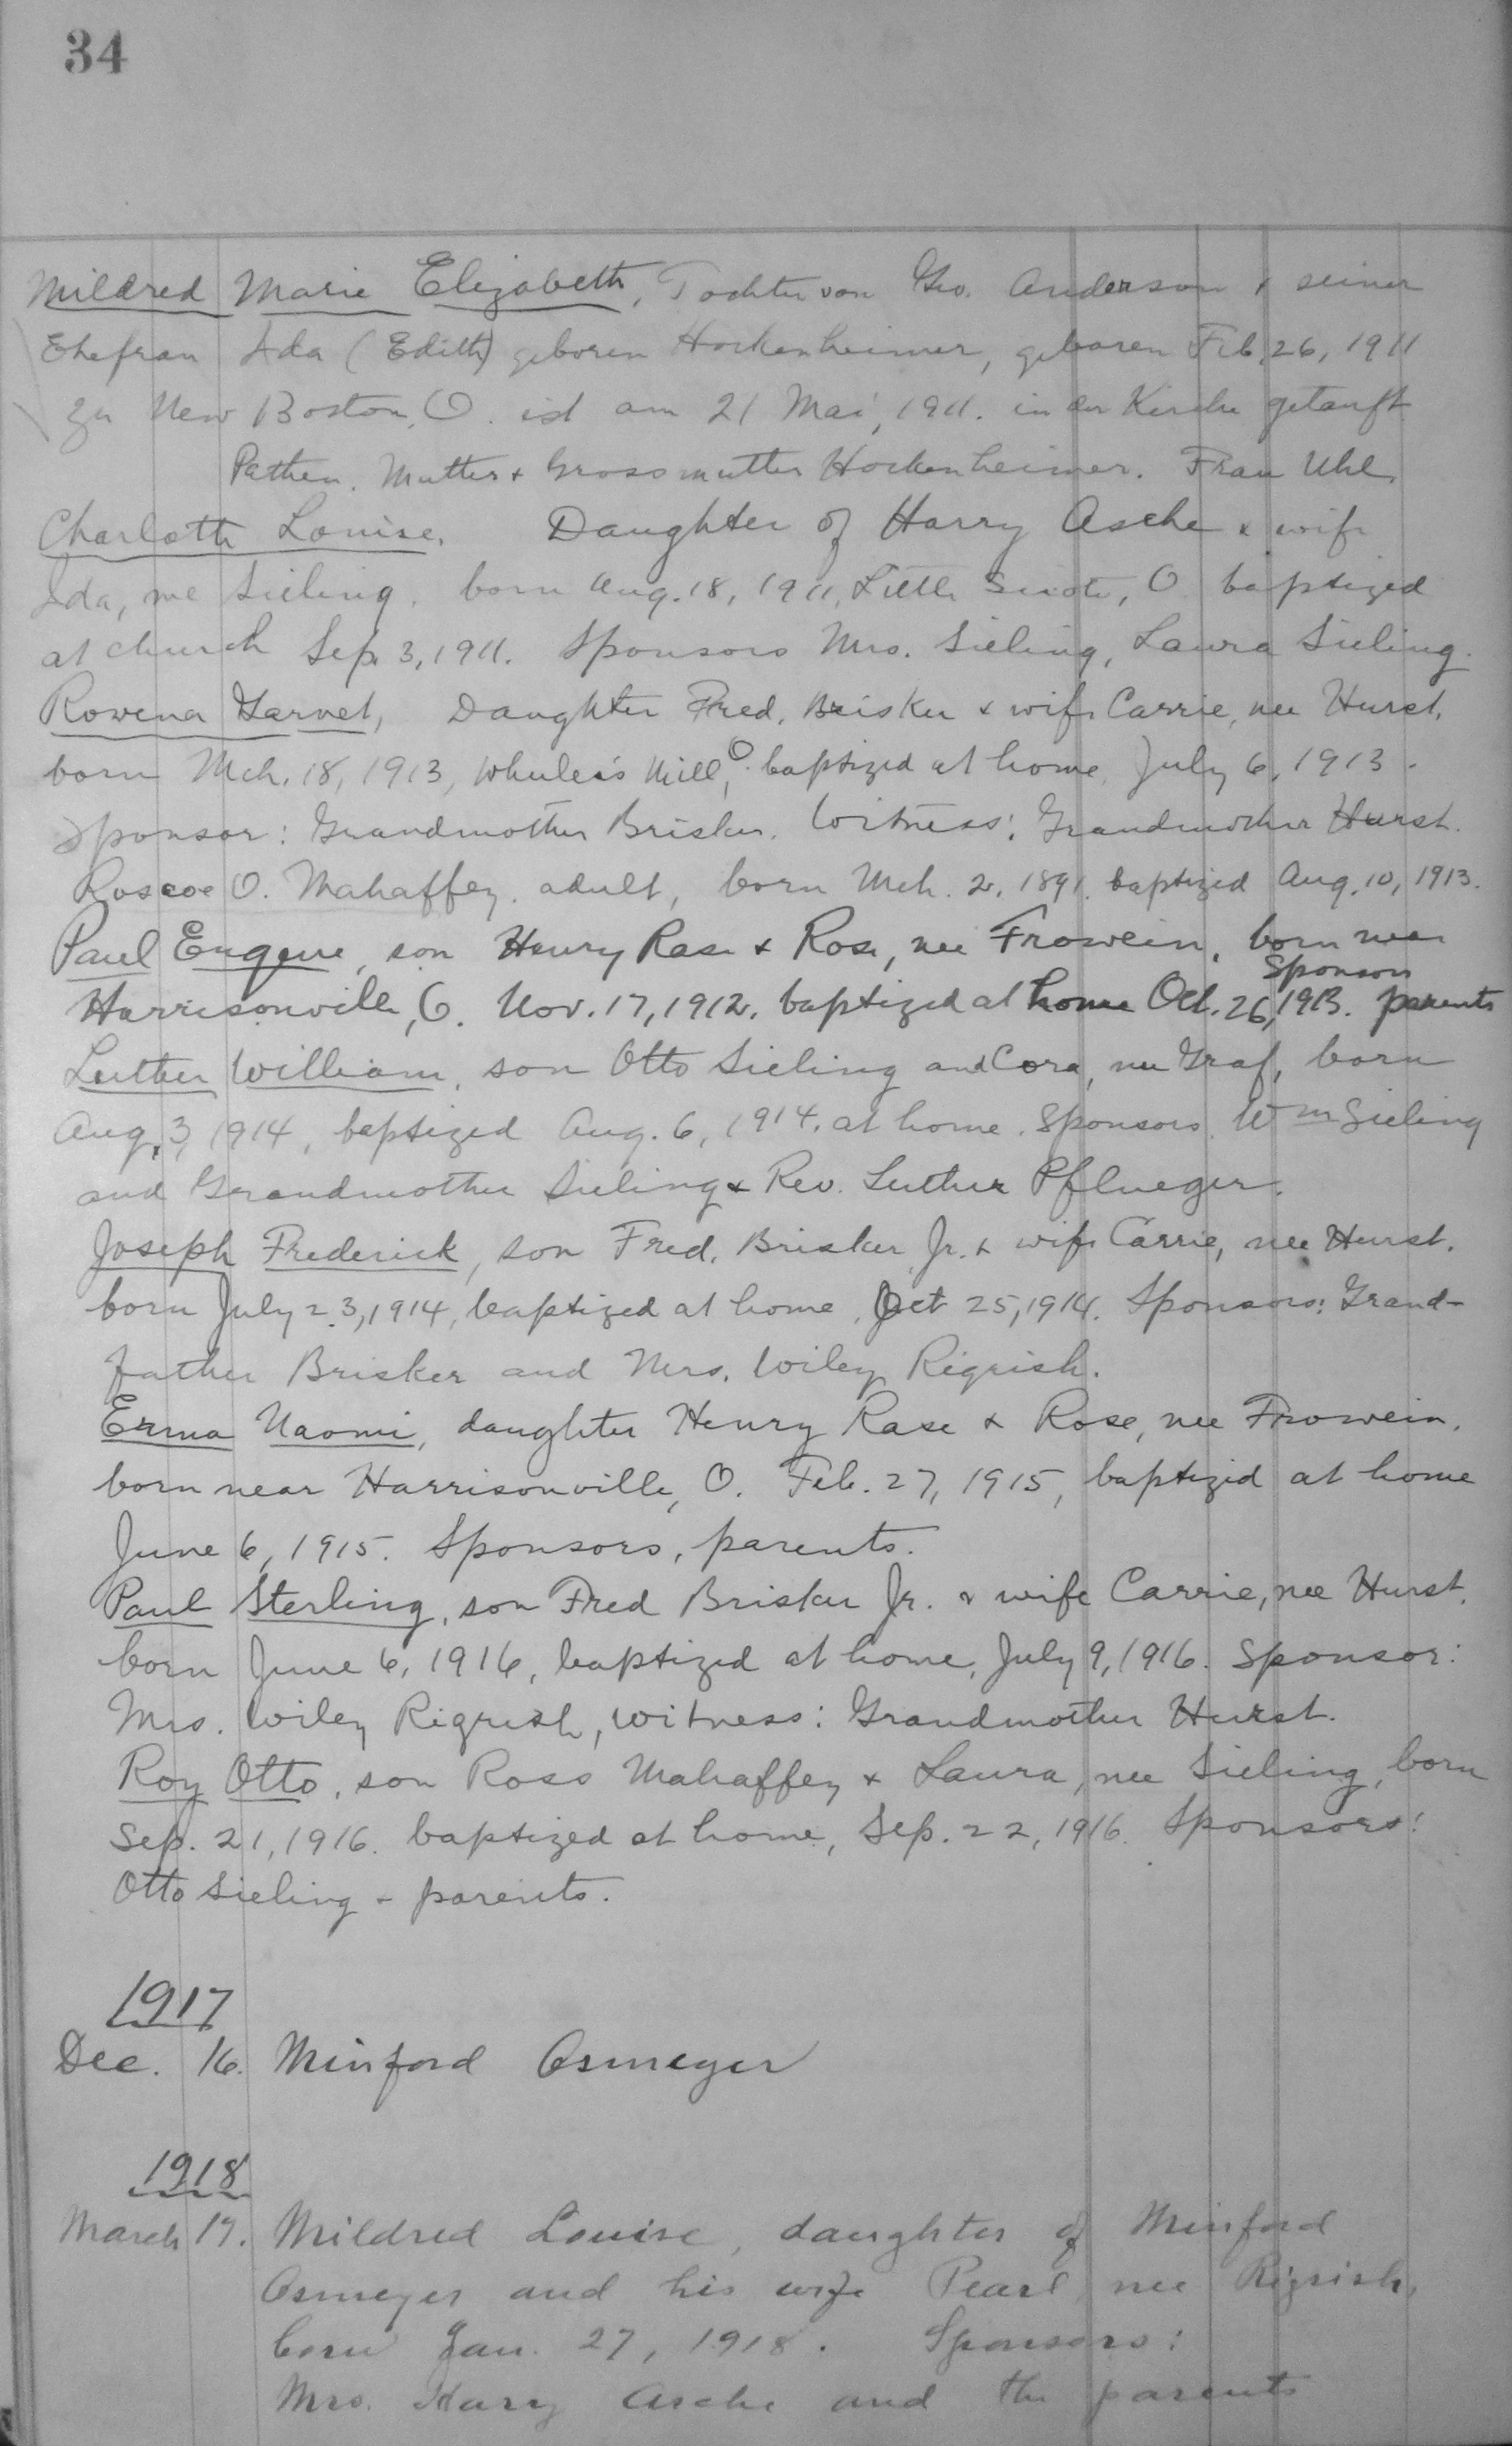 34
Mildred Marie Elizabeth, Tochter von Geo. Anderson & seiner
Ehefrau Ada (Edith) geboren Hockenheimer, geboren Feb. 26, 1911
zu New Boston, O. ist am 21 Mai, 1911. in der Kirche getauft
Pathen. Mutter & Grossmutter Hockenheimer. Frau Uhl.
Charlotte Louise. Daughter of Harry Asche & wife
Ida, nee Sieling. born Aug. 18, 1911, Little Scioto, O. baptized
at church Sep. 3, 1911. Sponsors Mrs. Sieling, Laura Sieling.
Rowena Garnet, Daughter Fred. Brisker & wife Carrie, nee Hurst,
born Mch. 18, 1913, Wheeler's Mill, O. baptized at home, July 6, 1913.
Sponsor: Grandmother Brisker. Witness: Grandmother Hurst.
Roscoe O. Mahaffey, adult, born Mch. 2, 1891. baptized Aug. 10, 1913.
Paul Eugene, son Henry Rase & Rose, nee Frowein, born near
Sponsors
Harrisonville, O. Nov. 17, 1912. baptized at home Oct. 26, 1913. parents
Luther William, son Otto Sieling and Cora, nee Graf, born
Aug. 3, 1914, baptized Aug. 6, 1914, at home. Sponsors Wm Sieling
and Grandmother Sieling & Rev. Luther Pflueger.
Joseph Frederick, son Fred. Brisker Jr. & wife Carrie, nee Hurst.
born July 23, 1914, baptized at home, Oct 25, 1914. Sponsors: Grand-
father Brisker and Mrs. Wiley Rigrish.
Erma Naomi, daughter Henry Rase & Rose, nee Frowein,
born near Harrisonville, O. Feb. 27, 1915, baptized at home
June 6, 1915. Sponsors, parents.
Paul Sterling, son Fred Brisker Jr. & wife Carrie, nee Hurst.
born June 6, 1916, baptized at home, July 9, 1916. Sponsor:
Mrs. Wiley Rigrish, Witness: Grandmother Hurst.
Roy Otto, son Ross Mahaffey & Laura, nee Sieling, born
Sep. 21, 1916. baptized at home, Sep. 22, 1916. Sponsors:
Otto Sieling & parents.
1917
Dec. 16. Minford Osmeyer
1918
March 17. Mildred Louise, daughter of Minford
Osmeyer and his wife Pearl nee Rigrish,
born Jan. 27, 1918. Sponsors:
Mrs. Harry Asche and the parents